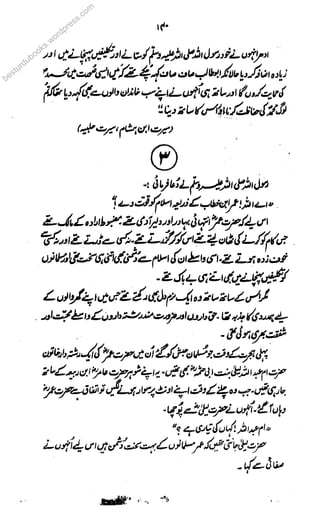 ۱۳۰
ادھر انہوں نے خود رسول اللہ صلی اللہ علیہ وسلم کو ستانے اور تکلیفیں پہنچانے میں اور
زیادہ اضافہ کر دیا حالانکہ ابوطالب صاف صاف کہہ چکے تھے کہ میں ایسی صورت میں محمدؐ
کی حمایت کروں گا اور ساتھ ہی انہوں نے اپنے سب خاندان والوں سے بھی کہہ دیا تھا کہ تم
لوگ محمدؐ کی حفاظت کرنا اور اس کا ساتھ دینا۔"
(سیرت ابن ہشام، سیرت حلبیہ)
۳
رسول اللہ صلی اللہ علیہ وسلم نے دعا فرمائی :-
"اے اللہ! عمر ابن خطاب کے ذریعہ اسلام کو قوت دے!"
اس لیے کہ حضرت عمرؓ انتہائی بہادر اور دلیر آدمی تھے، مضبوط ارادہ کے مالک تھے
جس کام کو کرنے کی ٹھان لیتے تھے اس کو کر گزرتے تھے، نہ کسی سے ڈرتے تھے اور نہ کسی سے
خوف زدہ ہوتے تھے، اسی واسطے ان کی اسلام سے دشمنی بھی اتنی ہی سخت تھی اور مسلمانوں
کو تکلیفیں پہنچانے میں بھی اتنے ہی بے باک تھے۔
مگر اس کے ساتھ ساتھ وہ ایک نرم دل بھی رکھتے تھے جس میں اپنے گھر والوں کے
لیے ہمدردی کا جذبہ تھا۔ حق داروں اور ضرورت مند رشتہ داروں کے واسطے محبت اور
شفقت بھری ہوئی تھی۔
پہلی ہجرت کے وقت جو مسلمان حبش کو گئے اُن میں حضرت عمرؓ کی ایک رشتہ دار خاتون
حضرت ام عبداللہ لیلیٰ بنت ابی حثمہؓ بھی تھیں۔ یہ اپنے شوہر حضرت عامرؓ ابن ربیعہ کے ساتھ
جا رہی تھیں، جب وہ چلنے کے وقت اپنے اونٹ پر سوار ہونے لگیں تو اتفاق سے حضرت عمرؓ
وہاں آ گئے، انہوں نے حضرت لیلیٰؓ سے پوچھا۔
"ام عبداللہ! کہاں کی تیاری ہے؟"
حضرت لیلیٰؓ جانتی تھیں کہ عمر مسلمانوں کے بہت سخت دشمن ہیں اس لیے انہوں نے
صفائی سے کہا۔
besturdubooks.wordpress.com